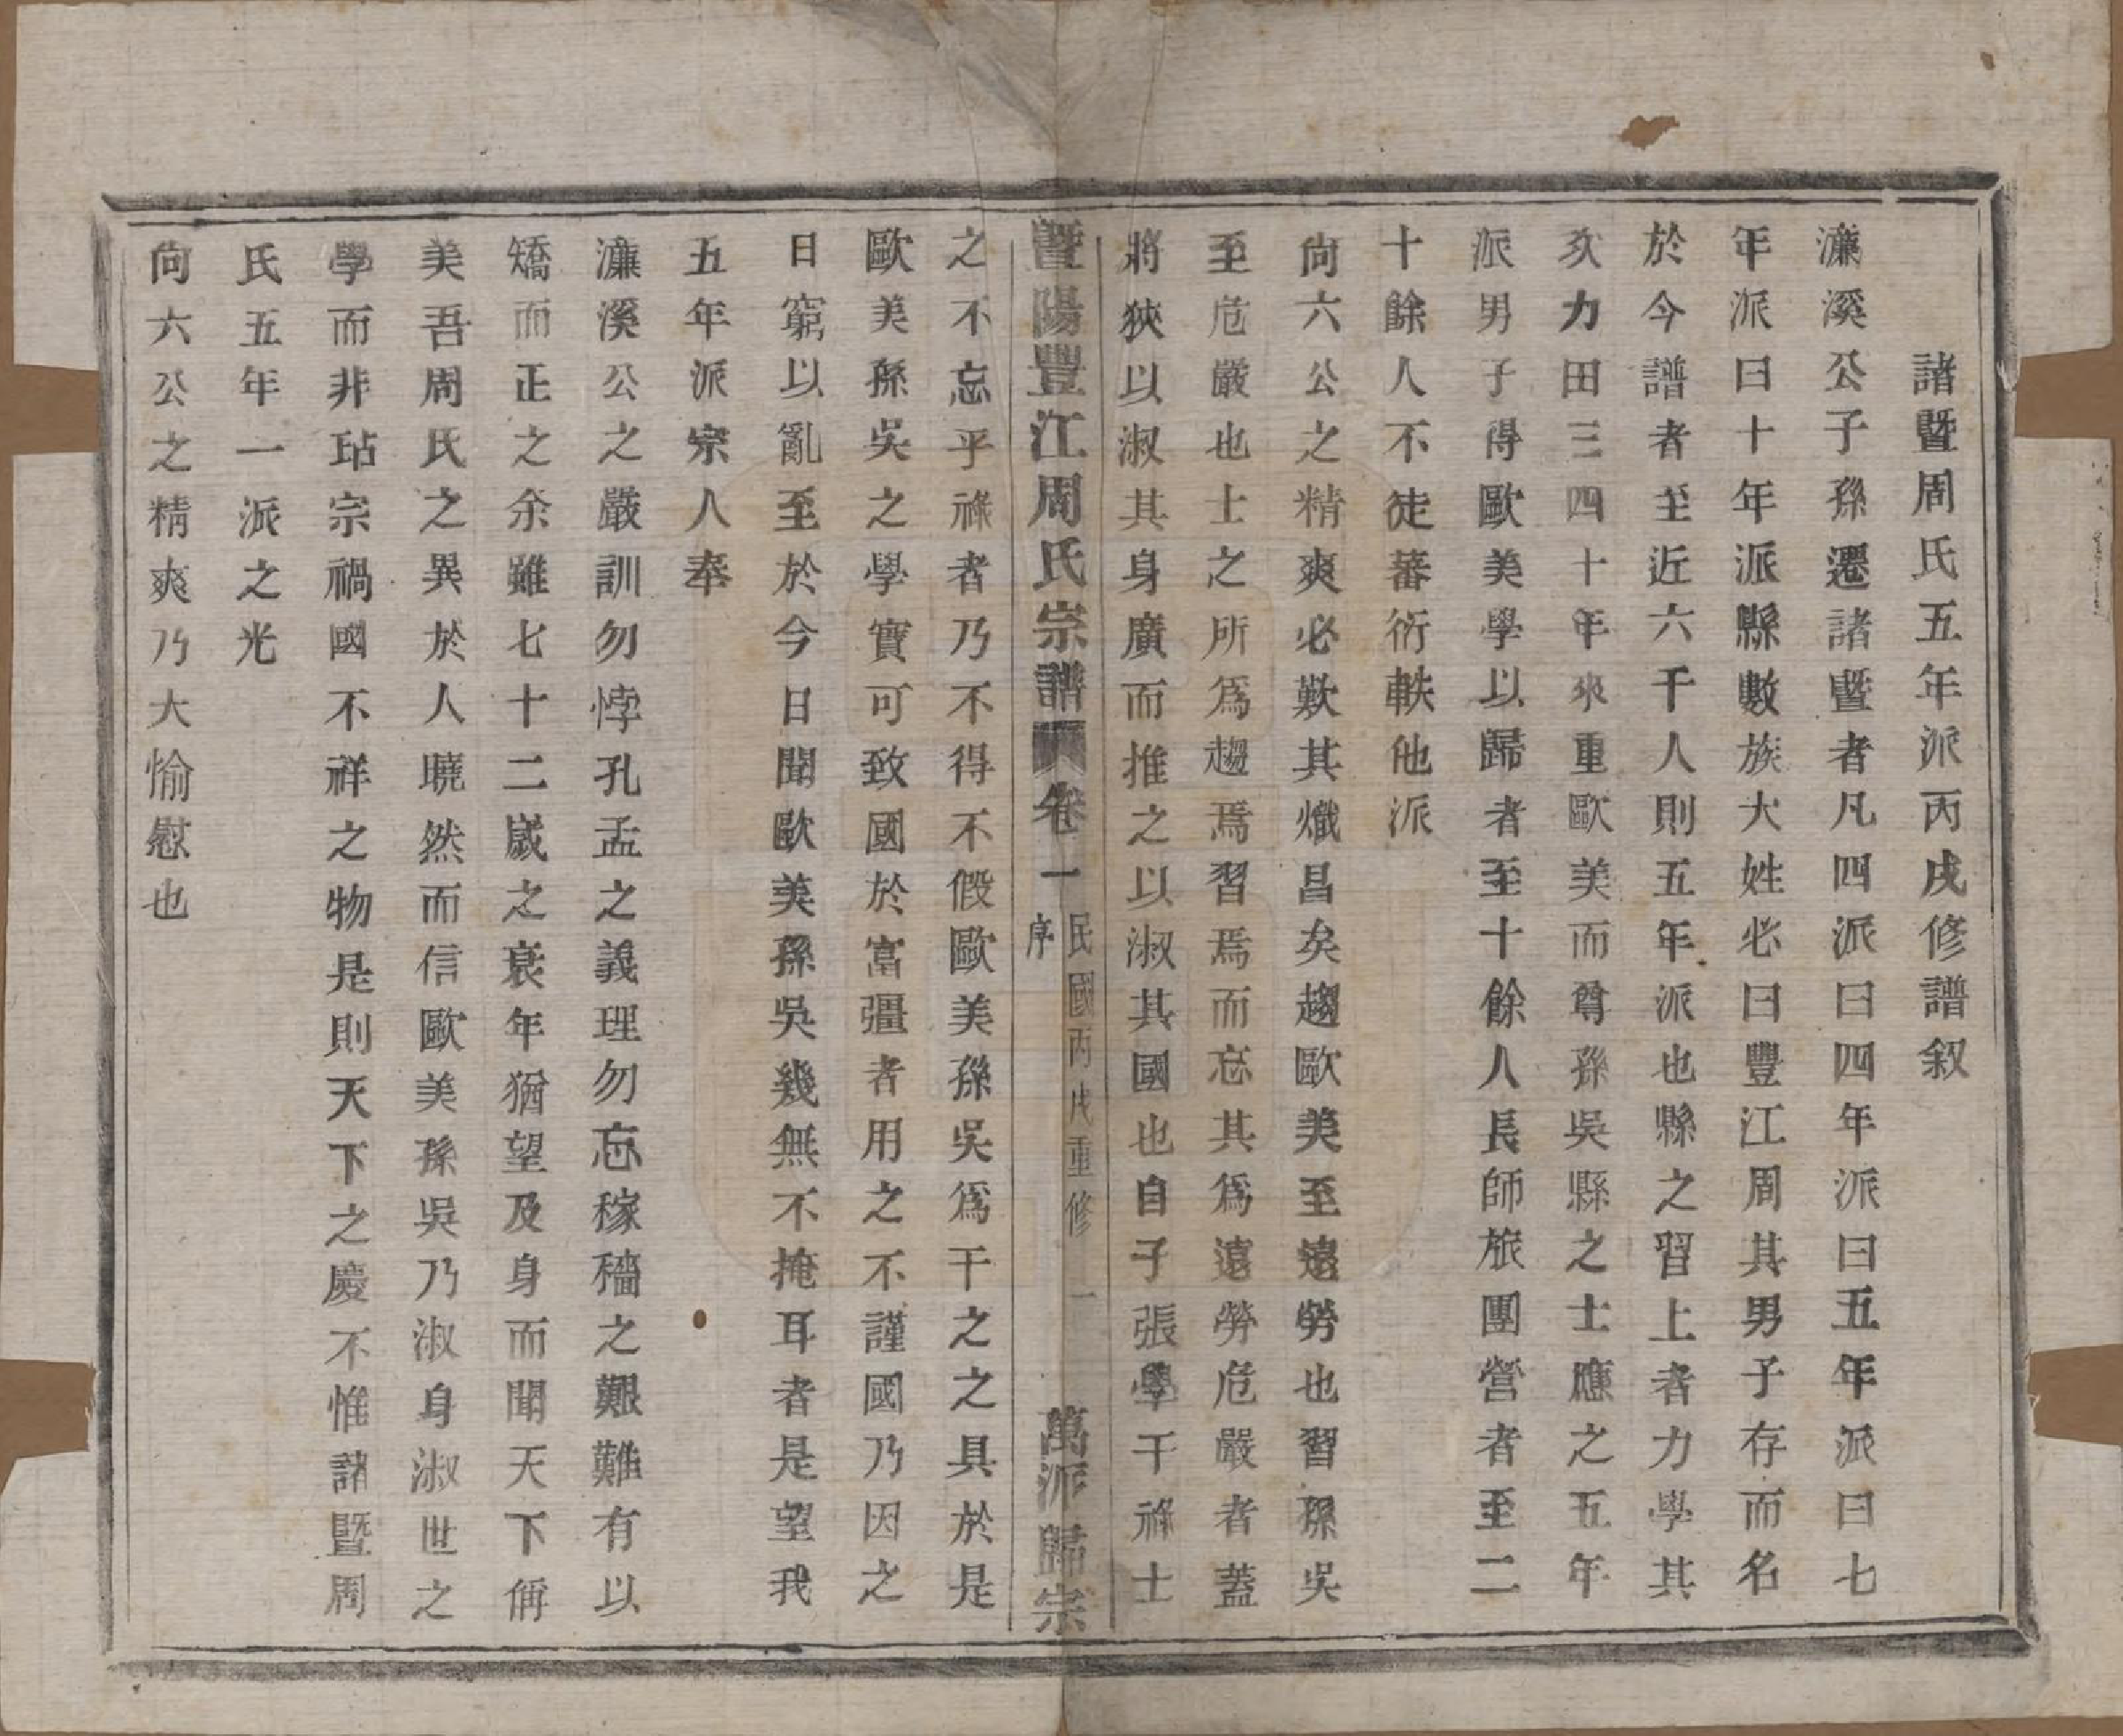 諸暨周氏五年派丙戌修譜叙
濂溪公子孫遷諸暨者凡四派曰四年派曰五年派曰七
年派曰十年派縣數族大姓必曰豐江周其男子存而名
於今譜者至近六千人則五年派也縣之習上者力學其
次力田三四十年來重歐美而尊孫吳縣之士應之五年
派男子得歐美學以歸者至十餘人長師旅團營者至二
十餘人不徒蕃衍軼他派
尙六公之精爽必歎其熾昌矣趨歐美至遠勞也習孫吳
至危嚴也士之所爲趨焉習焉而忘其爲遠勞危嚴者蓋
將狹以淑其身廣而推之以淑其國也自子張學干祿士
曁陽豐江周氏宗譜 卷一 序 民國丙戌重修 一 萬派歸宗
之不忘乎祿者乃不得不假歐美孫吳爲干之之具於是
歐美孫吳之學實可致國於富彊者用之不謹國乃因之
日窮以亂至於今日聞歐美孫吳幾無不掩耳者是望我
五年派宗人奉
濂溪公之嚴訓勿悖孔孟之義理勿忘稼穡之艱難有以
矯而正之余雖七十二歲之衰年猶望及身而聞天下偁
美吾周氏之異於人曉然而信歐美孫吳乃淑身淑世之
學而非玷宗禍國不祥之物是則天下之慶不惟諸暨周
氏五年一派之光
尙六公之精爽乃大愉慰也